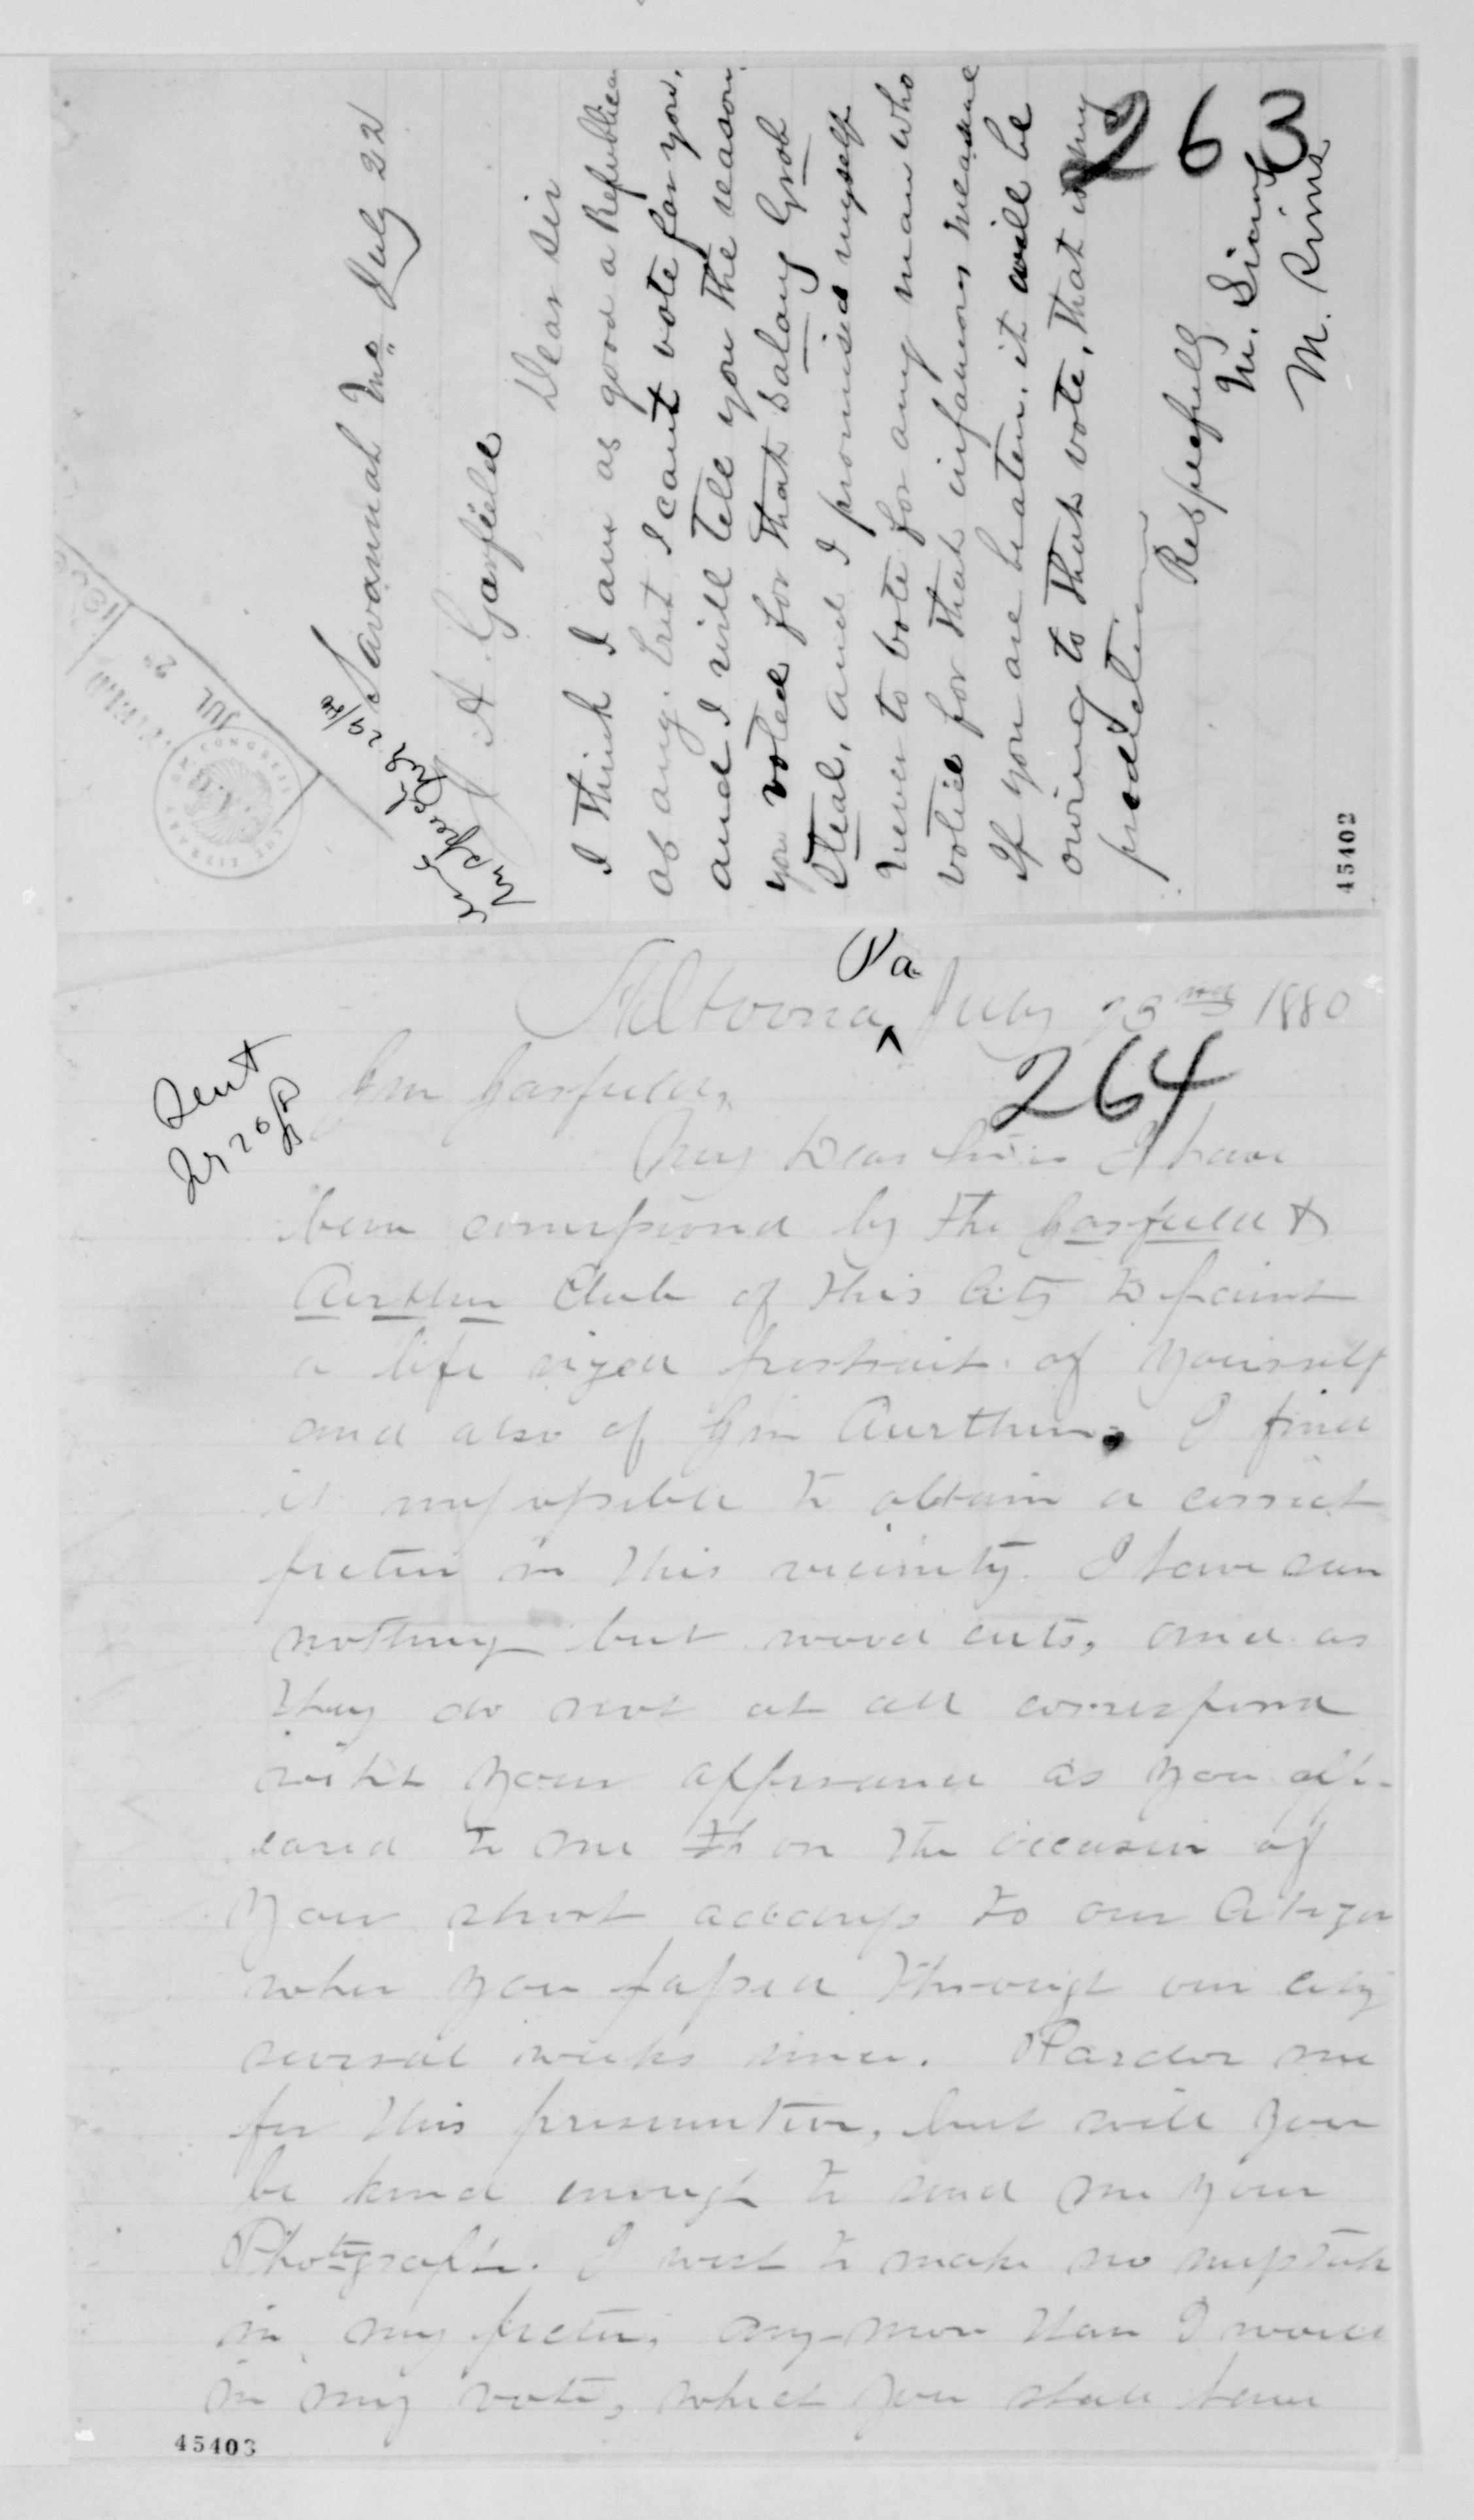 263
Savannah Mo. July 22
J A Garfield
Dear Sir
I think I am as good a Republican
as any. but I cant vote for you,
and I will tell you the reason,
you voted for that Salary Grab
Steal, and I promised myself
never to vote for any man who
voted for that infamous measure
If you are beaten, it will be
owing to that vote, That is my
prediction
Respecfuly
M. Sims
M. Sims
45402
JUL
Altoona Pa July 23 1880
Sent
264
Gen Garfield,
My Dear Sir I have
been
by the Garfield &
Aurther Club of this City to paint
a life sized portrait of yourself
and also of Gen Aurthur, I find
it impossible to obtain a correct
picture in this vicinity. I have seen
nothing but wood cuts, and as
they do not at all correspond
with your appearance as you app-
eared to me th on the occasion of
your short address to our Citizens
when you passed through our city
several weeks since. Pardon me
for this presumtion, but will you
be kind enough to send me your
Photograph. I wish to make no mistake
in my picture, any-more than I would
in my vote, which you shall have
45403